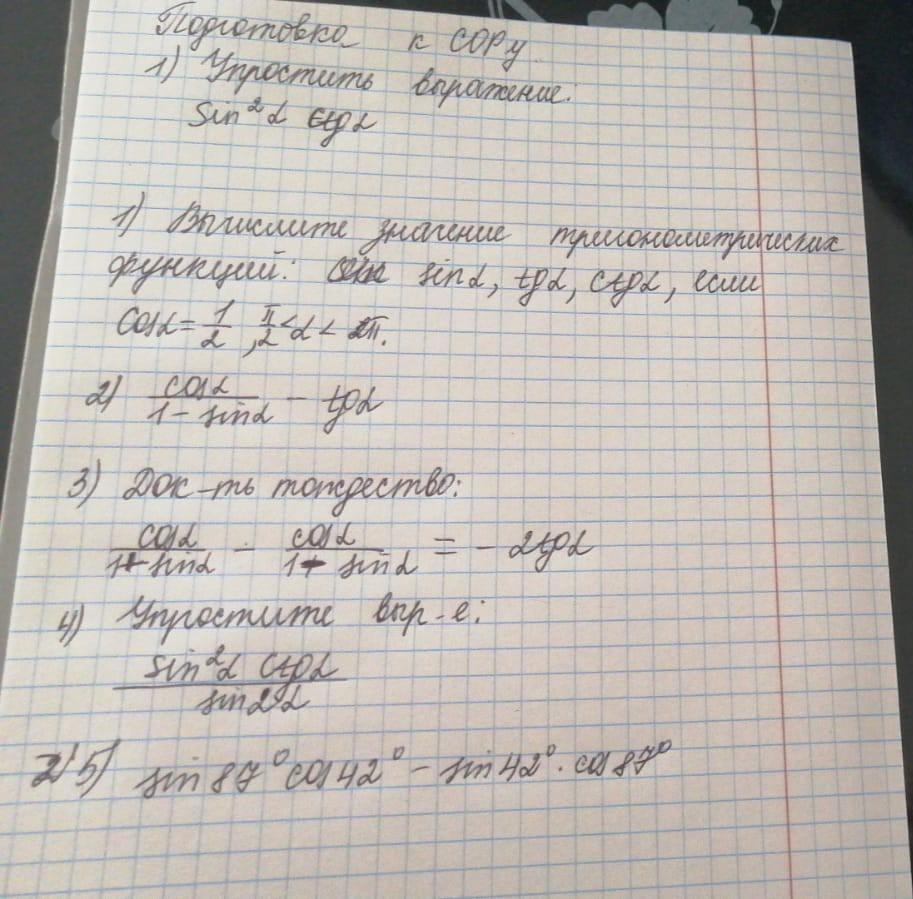 Подготовка к СОРу
1) Упростить выражение:
sin²α ctgα
1) Вычислите значение тригонометрических
функций: sinα, tgα, ctgα, если
cosα = 1/2, π/2 < α < 2π.
2) cosα/(1 - sinα) - tgα
3) Док-ть тождество:
cosα/(1 + sinα) - cosα/(1 - sinα) = - 2tgα
4) Упростите выр-е:
sin²α ctgα / sin2α
5) sin 87° cos 42° - sin 42° · cos 87°